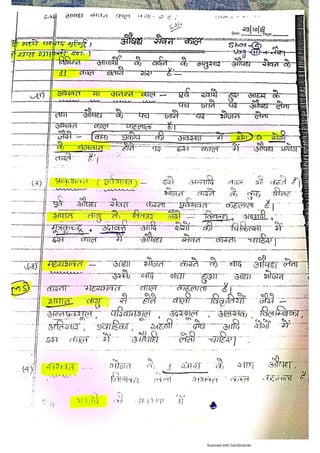 औषध सेवन काल
Date 22/10/18
विभिन्न आचार्यो के वर्णन के अनुसार औषध सेवन के
11 काल बताये गए है -
(1) अभक्त या अनन्न काल - पूर्व खाये हुए आहार के
पच जाने पर औषध लेना
तथा औषध के पच जाने पर भोजन लेना
अभक्त काल कहलाता है।
जैसे - कफ प्रकोप की अवस्था में रोग व रोगी
के बलवान होने पर इस काल में औषध प्रयोग
करते है।
(2) प्राकभक्त (पूर्वभक्त) - इसे अन्नादि काल भी कहते है
भोजन करने के कुछ मिनट
पूर्व औषध सेवन करना पूर्वभक्त कहलाता है।
अपान वायु के विकार जैसे विबन्ध, अश्मरी,
मूत्रकृच्छ्र, उदावर्त आदि रोगों की चिकित्सा में
इस काल में औषध सेवन करना चाहिए।
(3) मध्यभक्त - आधा भोजन करने के बाद औषध लेना
उसके बाद बचा हुआ आधा भोजन
करना मध्यभक्त काल कहलाता है।
समान वायु से होने वाली विकृतियों जैसे -
अन्नद्रवशूल, परिणामशूल, उदरशूल, अलसक, विलम्बिका,
अतिसार, प्रवाहिका, ग्रहणी दोष आदि रोगों में
इस काल में औषधि लेनी चाहिए।
(4) सभक्त - भोजन के ग्रास के साथ औषध
मिलाकर लेना सभक्त काल कहलाता है
Scanned with CamScanner